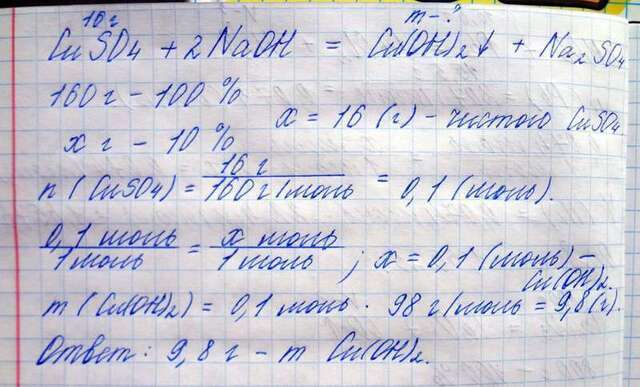 10 г m - ?
CuSO4 + 2 NaOH = Cu(OH)2↓ + Na2SO4
160 г – 100 %
x г – 10 %
x = 16 (г) – чистого CuSO4
n (CuSO4) = 16 г / 160 г/моль = 0,1 (моль).
0,1 моль / 1 моль = x моль / 1 моль ; x = 0,1 (моль) – Cu(OH)2.
m (Cu(OH)2) = 0,1 моль · 98 г/моль = 9,8 (г).
Ответ: 9,8 г – m Cu(OH)2.